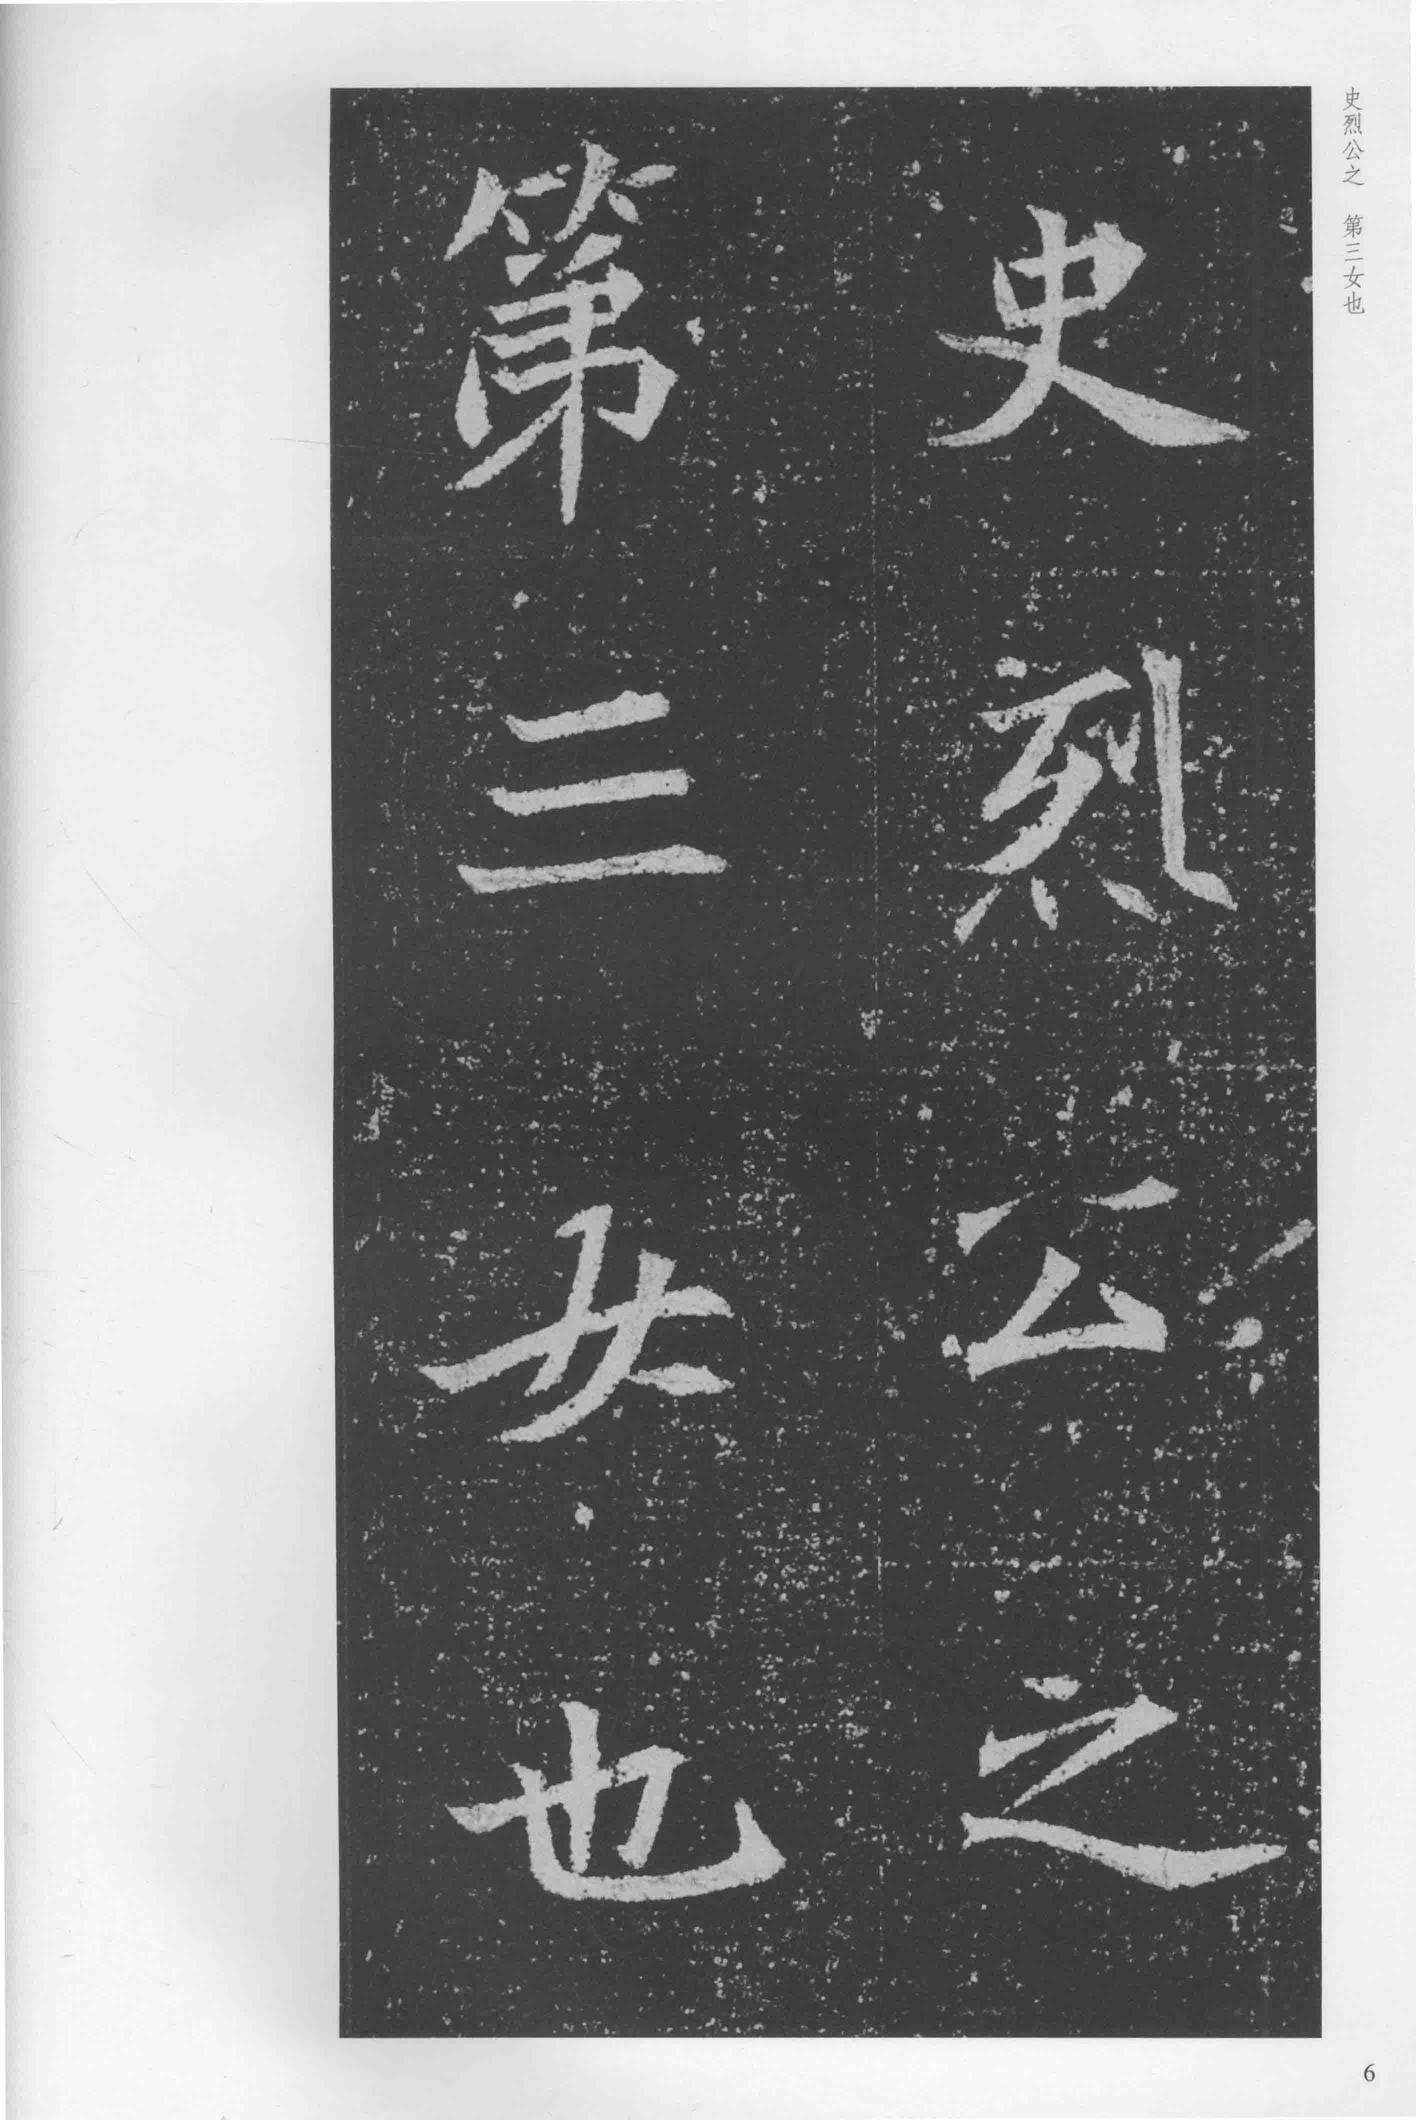 史烈公之　第三女也
史烈公之
第三女也
6